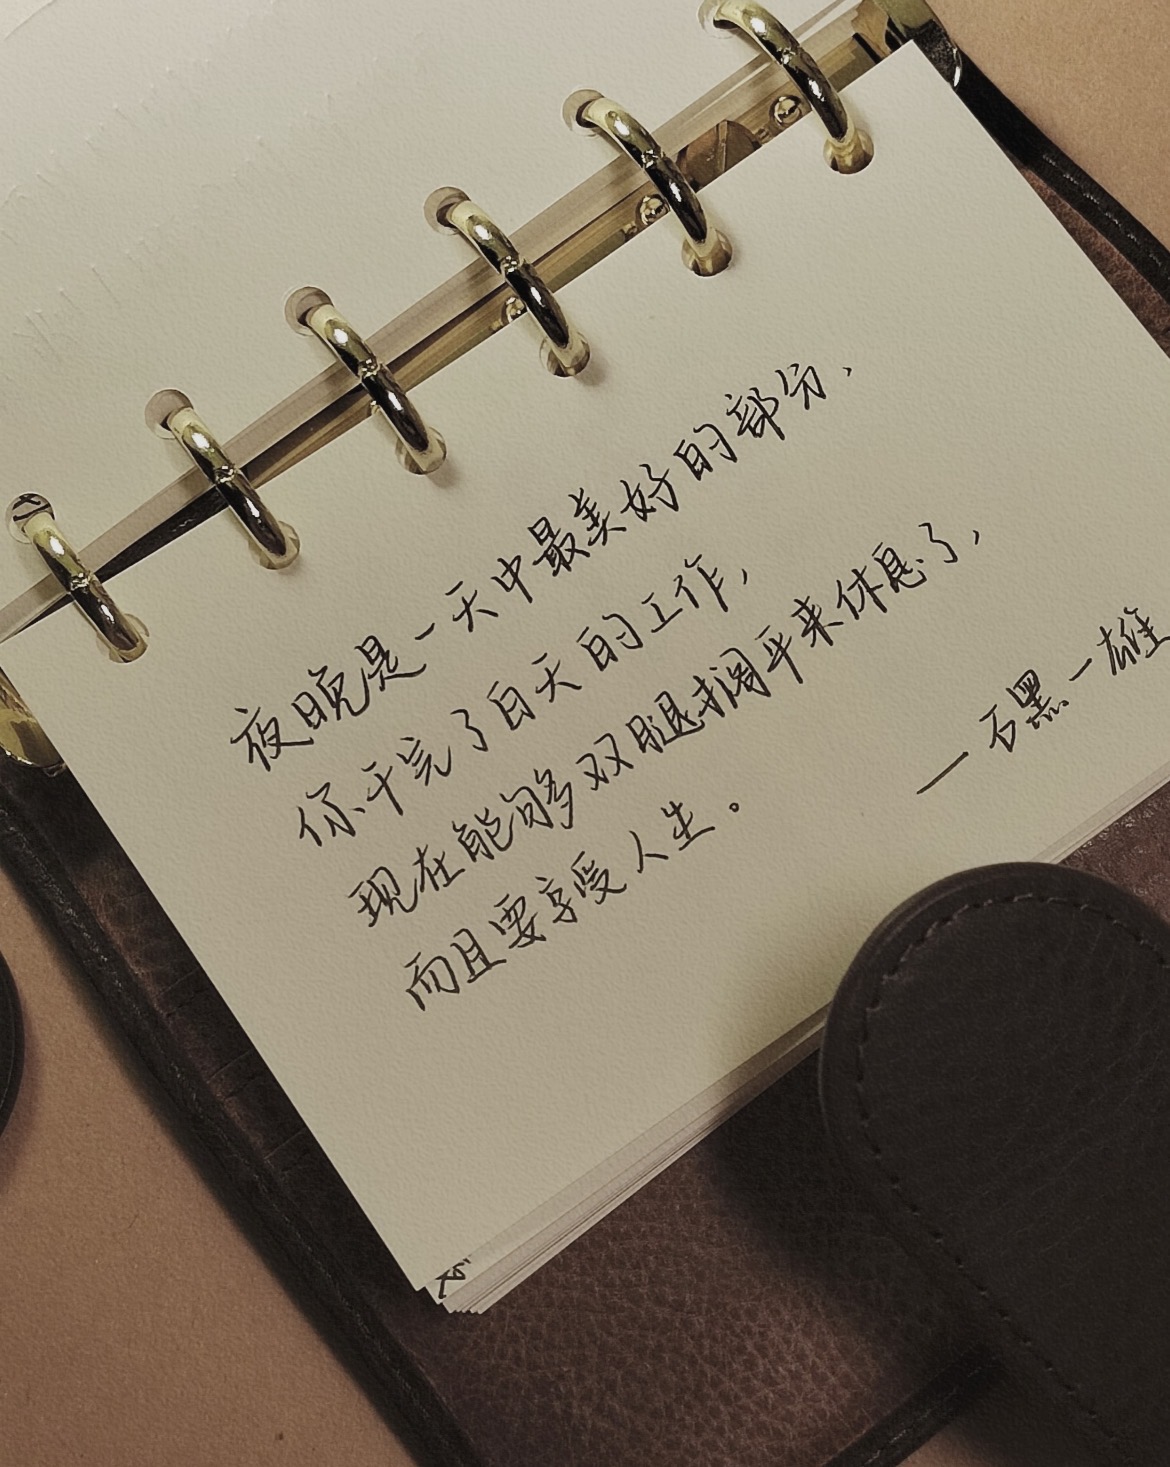 夜晚是一天中最美好的部分,
你干完了白天的工作,
现在能够双腿搁平来休息了,
而且要享受人生。
— 石黑一雄